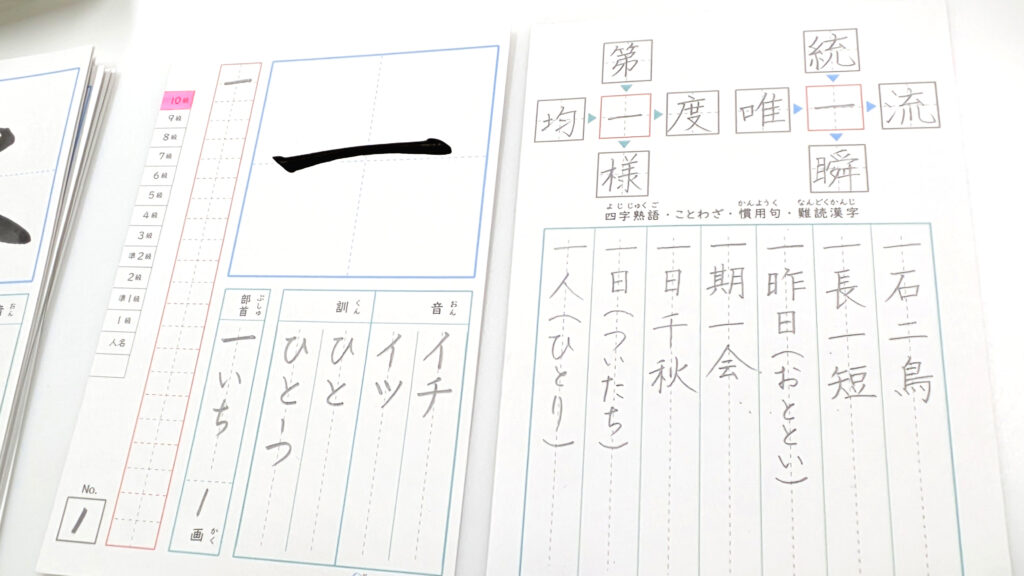 一
10級
9級
8級
7級
6級
5級
4級
3級
準2級
2級
準1級
1級
人名
No.
1
一
部首
ぶしゅ
一 いち
1
画
かく
音
おん
イチ
イツ
訓
くん
ひと
ひと-つ
第
均
一
度
様
統
唯
一
流
瞬
よじじゅくご
かんようく
なんどくかんじ
四字熟語・ことわざ・慣用句・難読漢字
一石二鳥
一長一短
一昨日(おととい)
一期一会
一日千秋
一日(ついたち)
一人(ひとり)